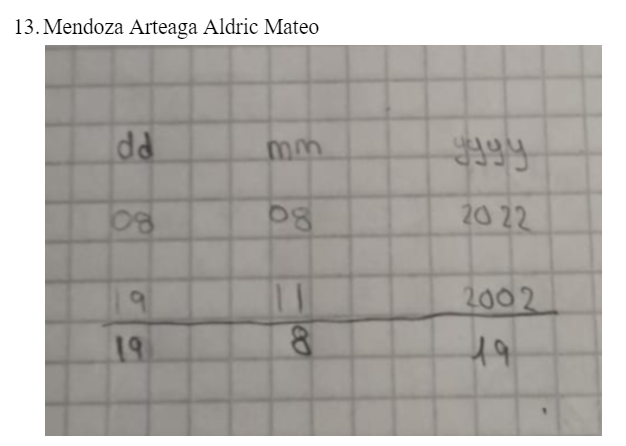 13. Mendoza Arteaga Aldric Mateo
dd mm yyyy
08 08 2022
19 11 2002
19 8 19